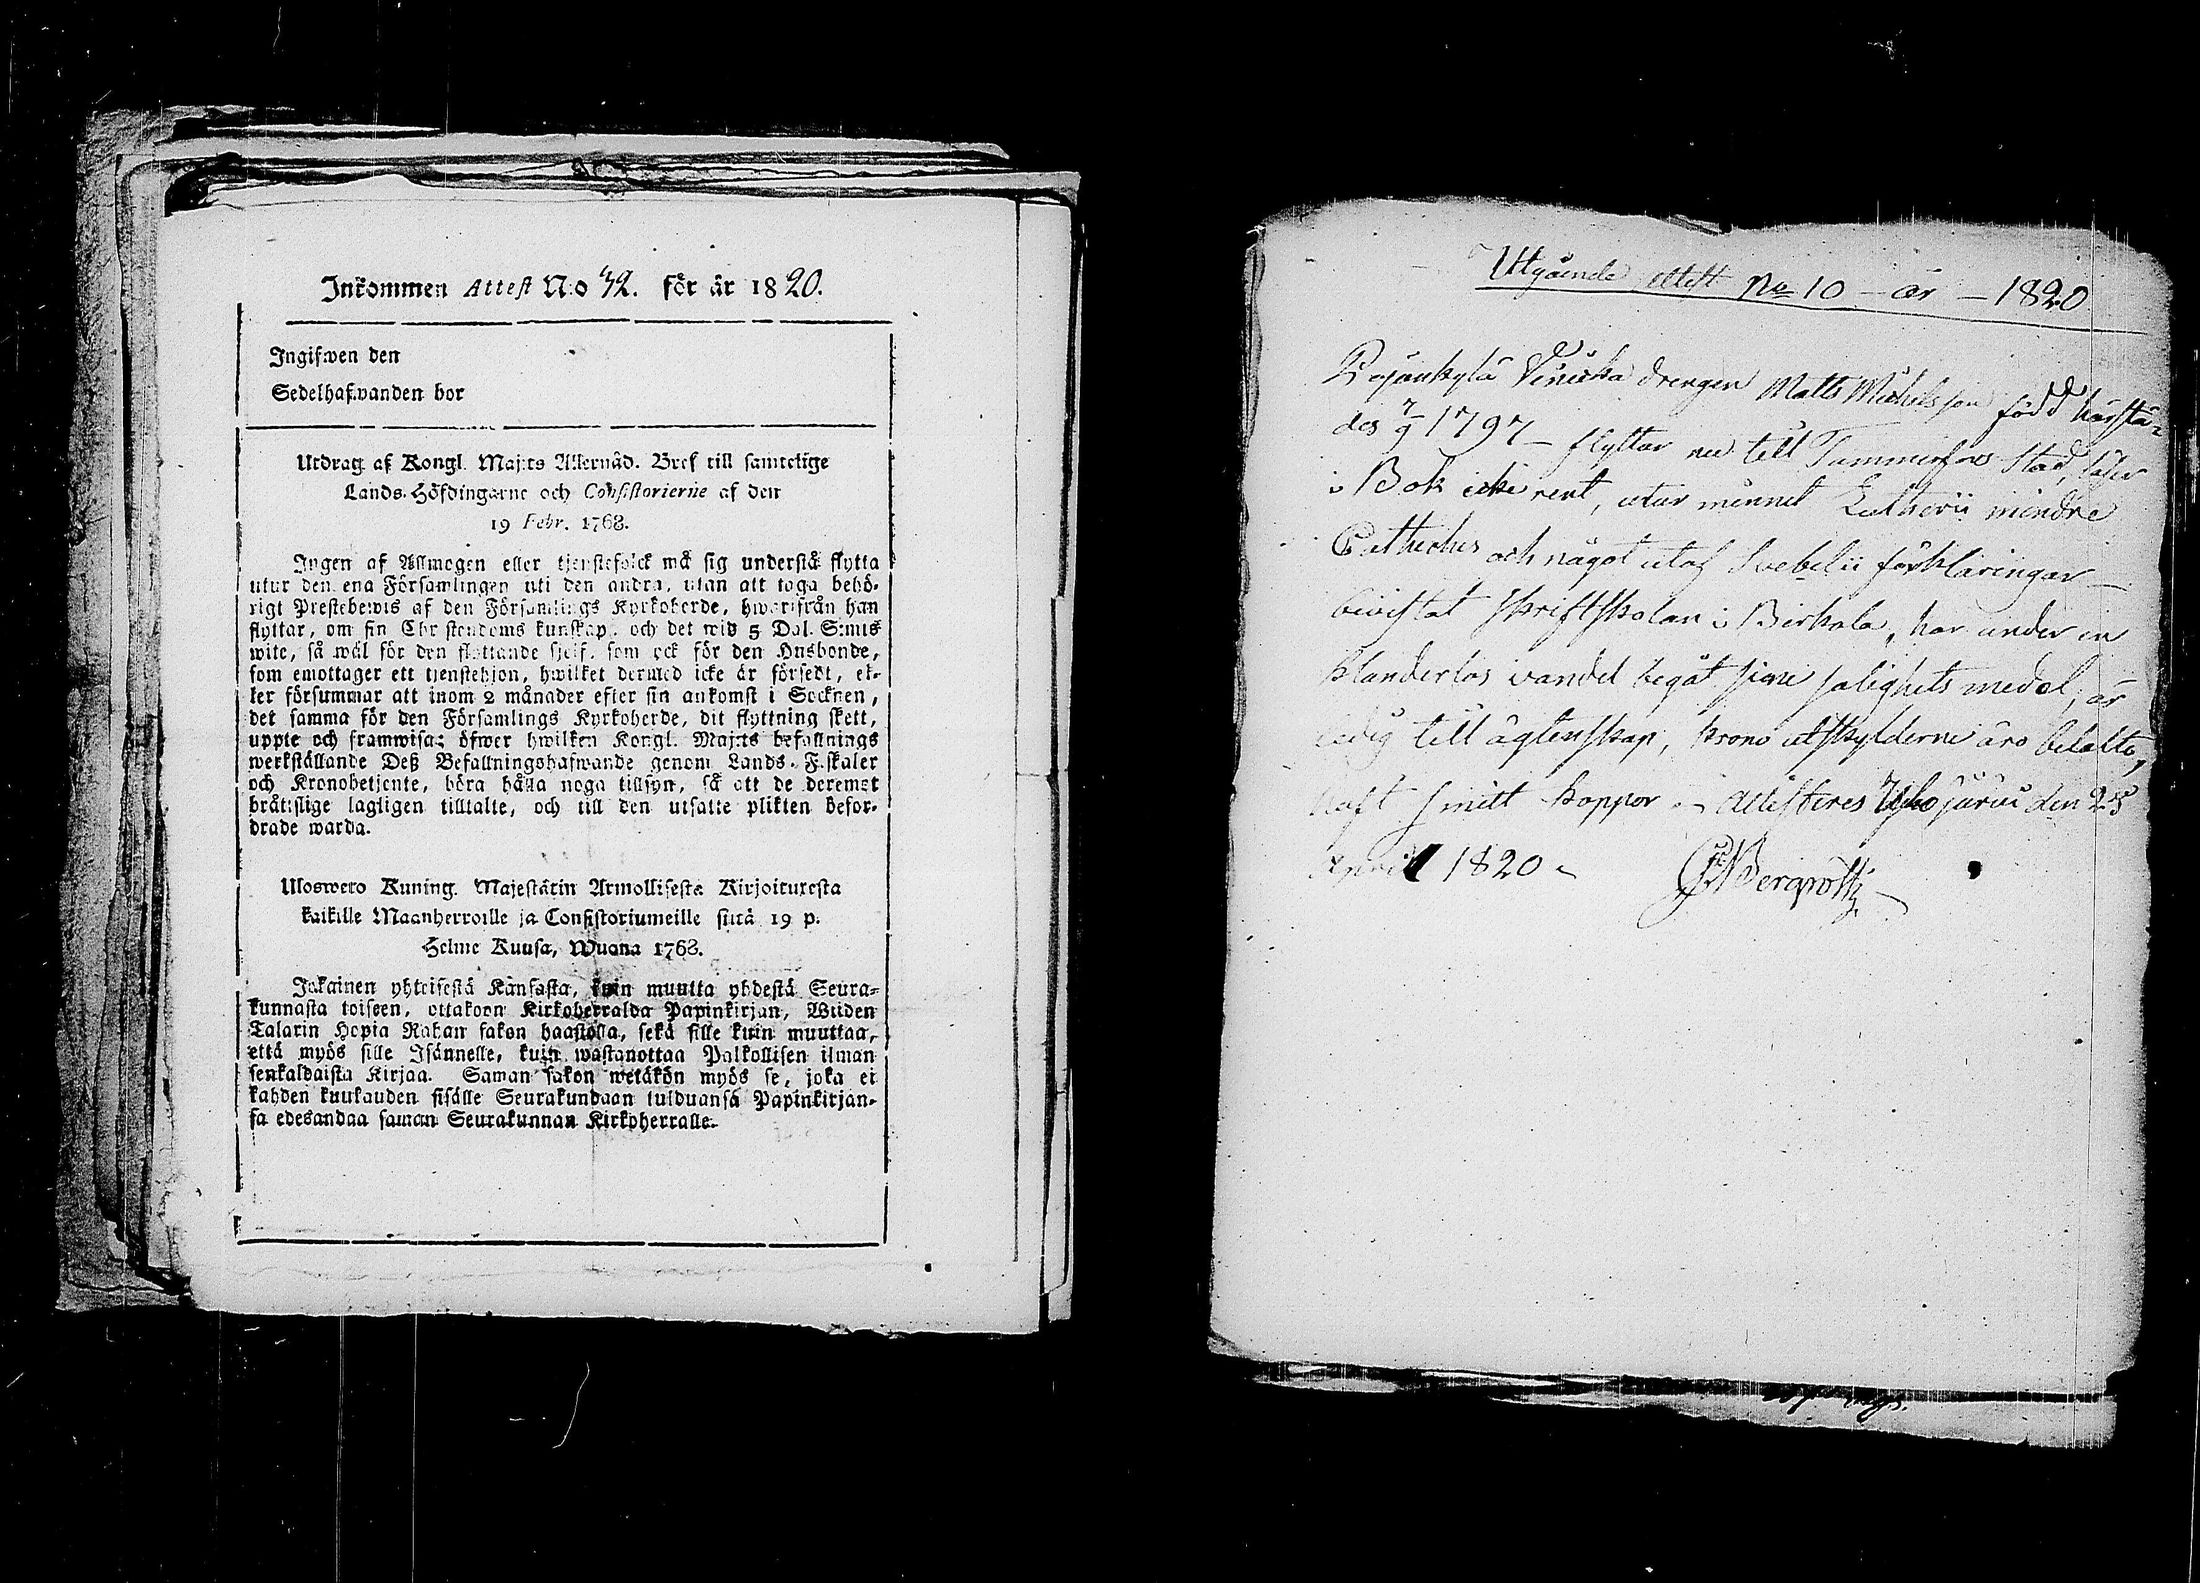 Inkommen Attest N:o 42. för år 1820.
Ingifwen den
Sedelhafwanden bor
Utdrag af Kongl. Maj:ts Allernåd. Bref till samtelige
Lands-Höfdingarne och Consistorierne af den
19 Febr. 1768.
Ingen af Allmogen eller tjenstefolck må sig understå flytta
utur den ena Församlingen uti den andra, utan att taga behö-
rigt Prestebewis af den Församlings Kyrkoherde, hwarifrån han
flyttar, om sin Christendoms kunskap, och det wid 5 Dal. S:mts
wite, så wäl för den flyttande sjelf, som ock för den Husbonde,
som emottager ett tjenstehjon, hwilket dermed icke är försedt, el-
ler försummar att inom 2 månader efter sin ankomst i Socknen,
det samma för den Församlings Kyrkoherde, dit flyttning skett,
uppte och framwisa; öfwer hwilken Kongl. Maj:ts befallnings
werkställande Deß Befallningshafwande genom Lands-Fiskaler
och Kronobetjente, böra hålla noga tillsyn, så att de deremot
brättslige lagligen tilltalte, och till den utsatte plikten befor-
drade warda.
Uloswero Kuning. Majestätin Armollisesta Kirjoituxesta
kaikille Maanherroille ja Consistoriumeille siitä 19 p.
Helme Kuusa, Wuona 1768.
Jokainen yhteisestä Kansasta, kuin muutta yhdestä Seura-
kunnasta toiseen, ottakoon Kirkoherralda Papinkirjan, Wiiden
Talarin Hopia Rahan sakon haastolla, sekä sille kuin muuttaa,
että myös sille Isännelle, kuin wastanottaa Palkollisen ilman
senkaldaista Kirjaa. Saman sakon wetäkön myös se, joka ei
kahden kuukauden sisälle Seurakundaan tulduansa Papinkirjan-
sa edesandaa saman Seurakunnan Kirkoherralle.
Utgående attest No 10 – år – 1820
drengen Matts Michelsson född härstä-
des 7/9 1797 – flyttar nu till Tammerfors Stad, läser
i Bok icke rent, utur minnet Lutherii mindre
Cathechus och något utaf Svebelii förklaringar –
bevistat skriftskolan i Birkala, har under en
klanderlös vandel begåt sine salighets medel, är
ledig till ägtenskap, krono utskylderne äro betalte,
haft smitt koppor – Attesteres Ylöjärvi den 25
April 1820 –
Bergroth